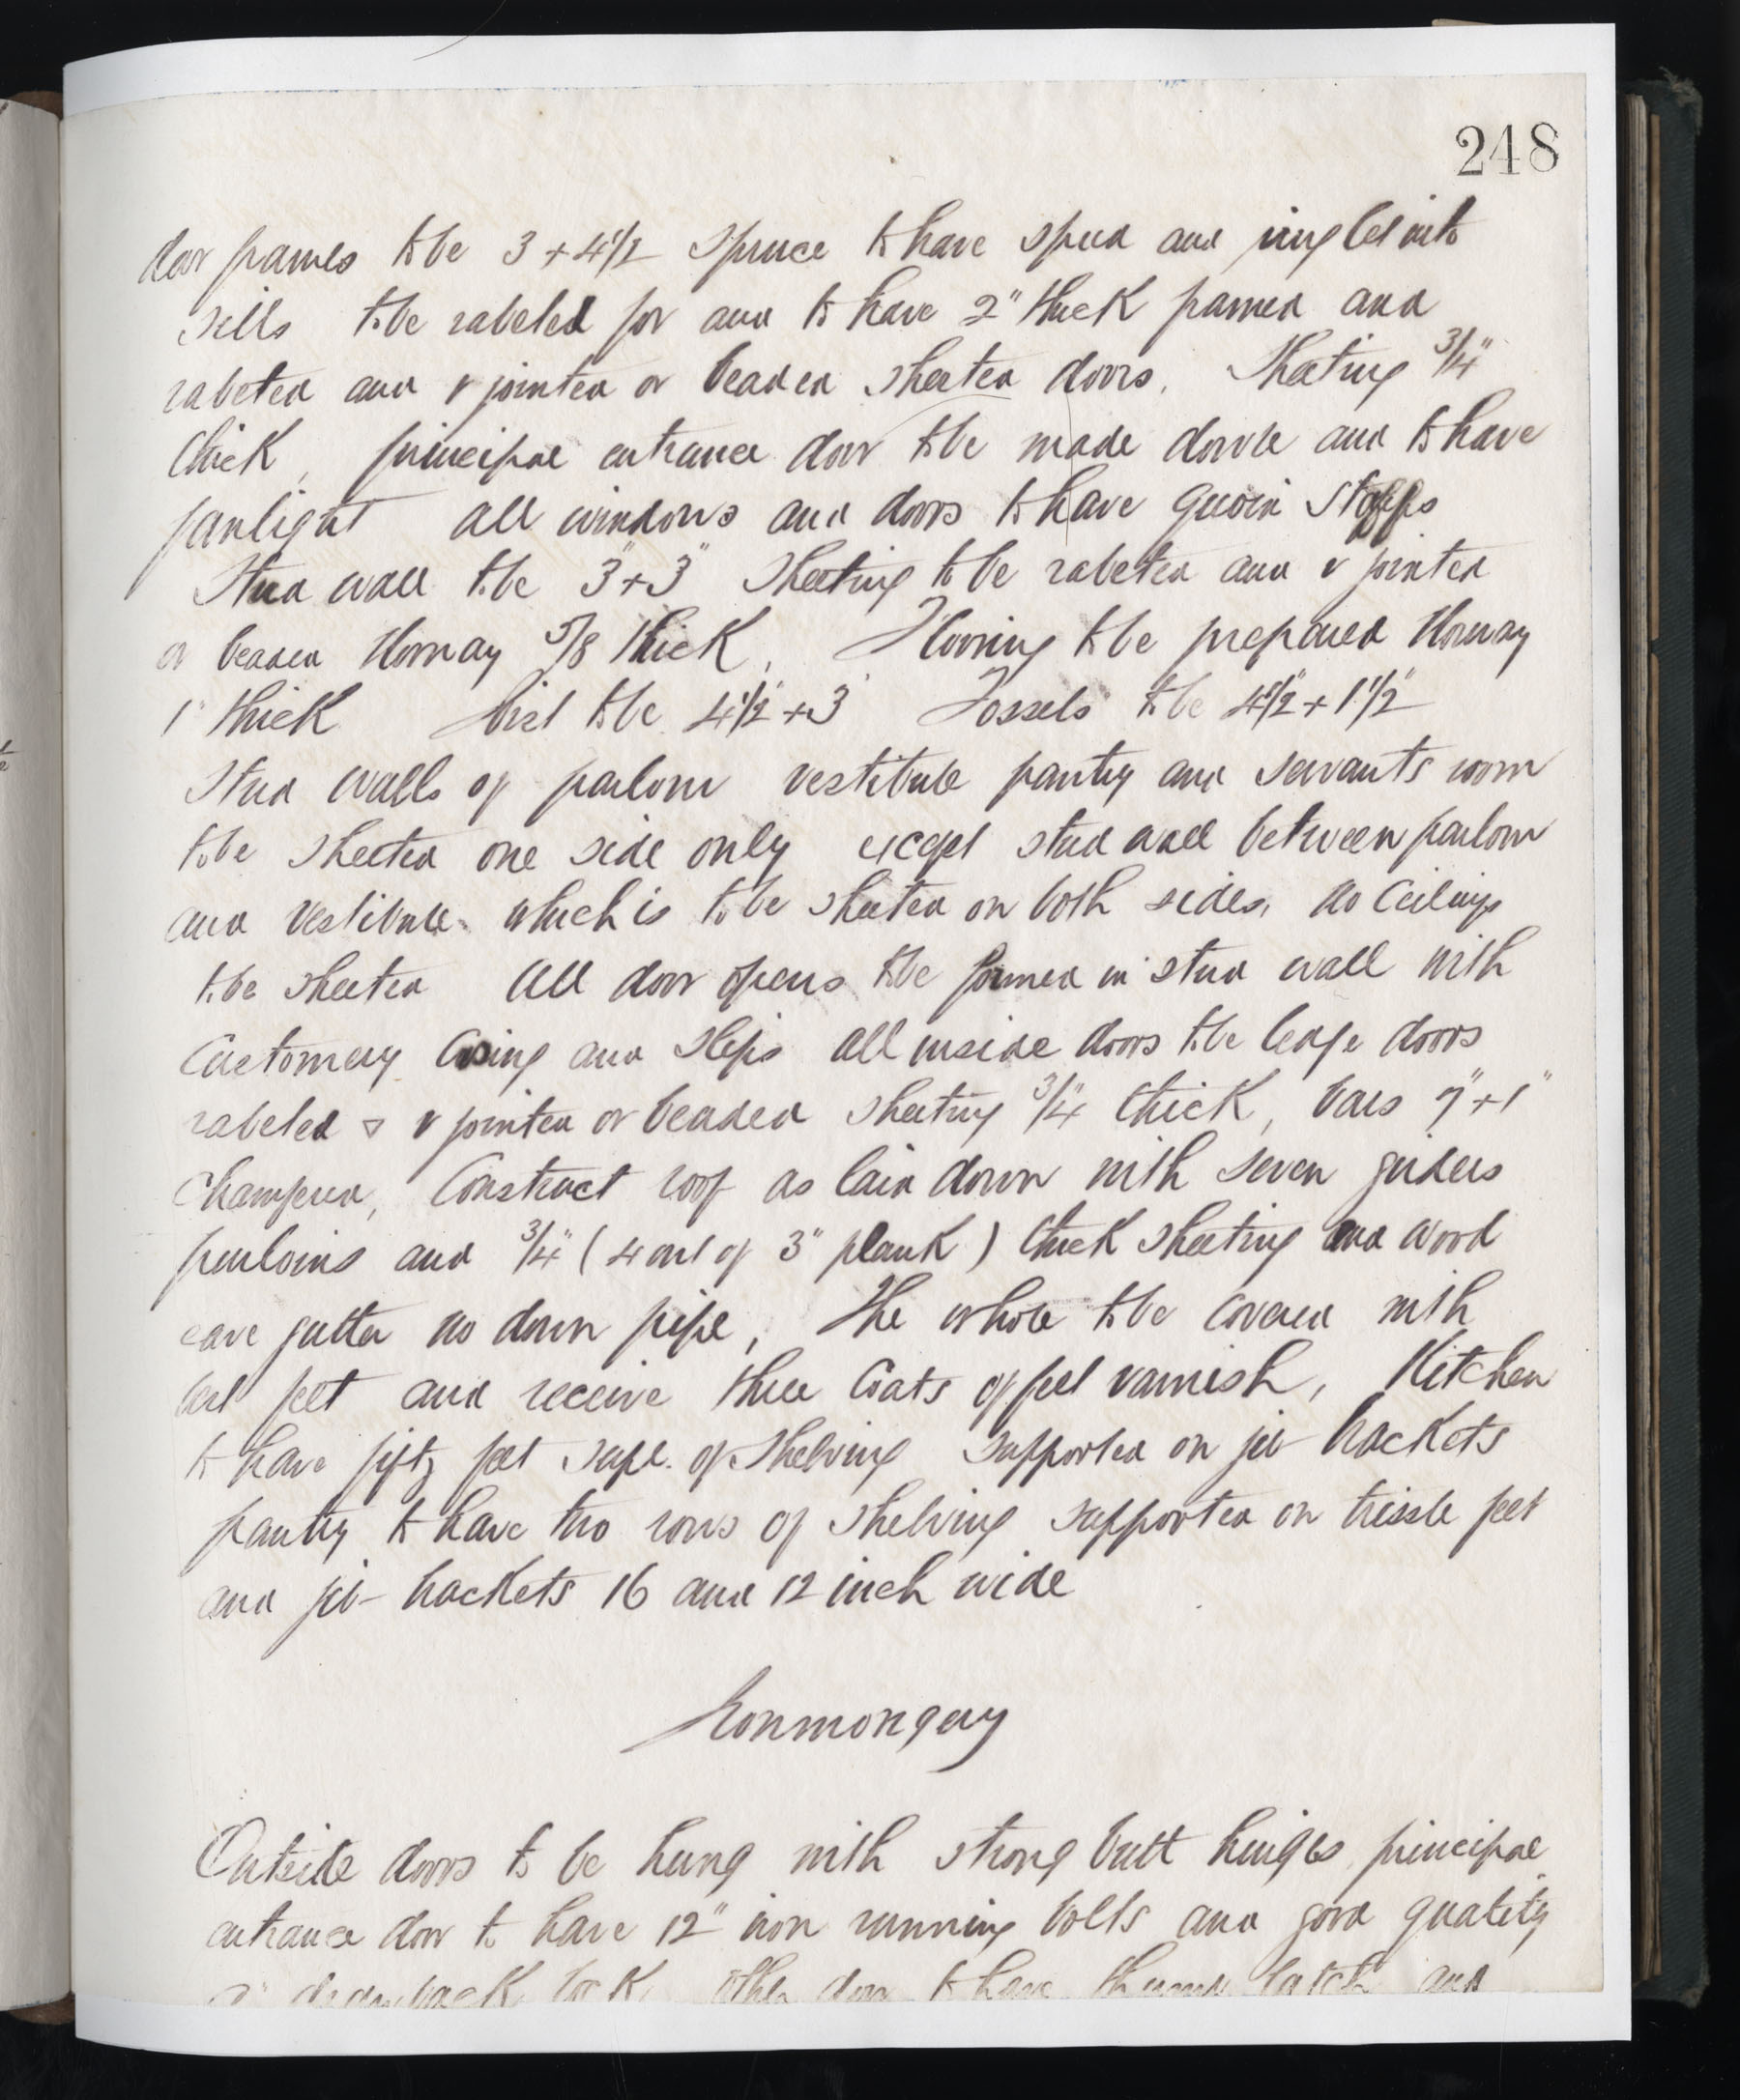 248
door frames to be 3 + 4 1/2 Spruce to have spud and ring let into
sills to be rabeted for and to have 2" thick framed and
rabeted and v jointed or beaded sheeted doors. Sheeting 3/4"
thick, principal entrance door to be made double and to have
fanlight all windows and doors to have quoin stopps
Stud wall to be 3" + 3" Sheeting to be rabeted and v jointed
or beaded Norway 5/8 thick, Flooring to be prepared Norway
1" thick Bist to be 4 1/2" + 3" Tossels to be 4 1/2" + 1 1/2"
Stud walls of parlour vestibule pantry and servants room
to be sheeted one side only except stud wall between parlour
and vestibule which is to be sheeted on both sides, no Ceilings
to be sheeted All door opens to be formed in stud wall with
Customery Casing and slips all inside doors to be ledge doors
rabeted & v jointed or beaded sheeting 3/4" thick, bars 7" + 1"
Chamfered, Construct roof as laid down with seven girders
purloins and 3/4" (4 out of 3" plank) thick sheeting and wood
eave gutter no down pipe, The whole to be covered with
best felt and receive three Coats of felt varnish, Kitchen
to have fifty feet supl. of Shelving supported on jib brackets
pantry to have two rows of shelving supported on trissle feet
and jib brackets 16 and 12 inch wide
Ironmongery
Outside doors to be hung with strong butt hinges principal
entrance door to have 12" iron running bolts and good quality
drawback lock, other door to have thumb latch and